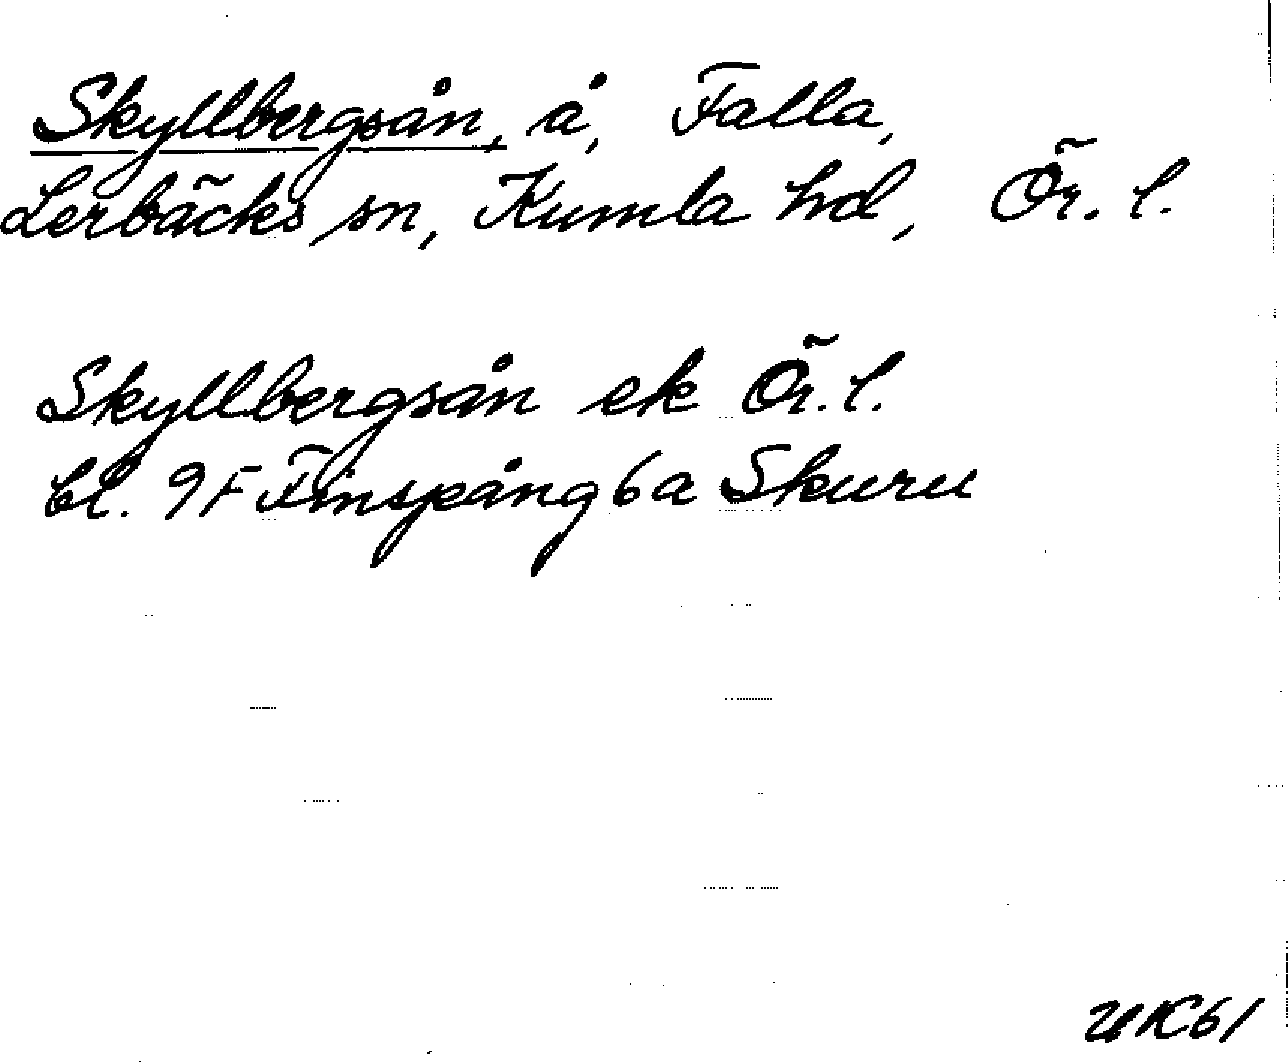 Skyllbergsån, å, Falla,
Lerbäcks sn, Kumla hd, Ör. l.
Skyllbergsån ek Ör. l.
bl. 9F Finspång 6a Skuru